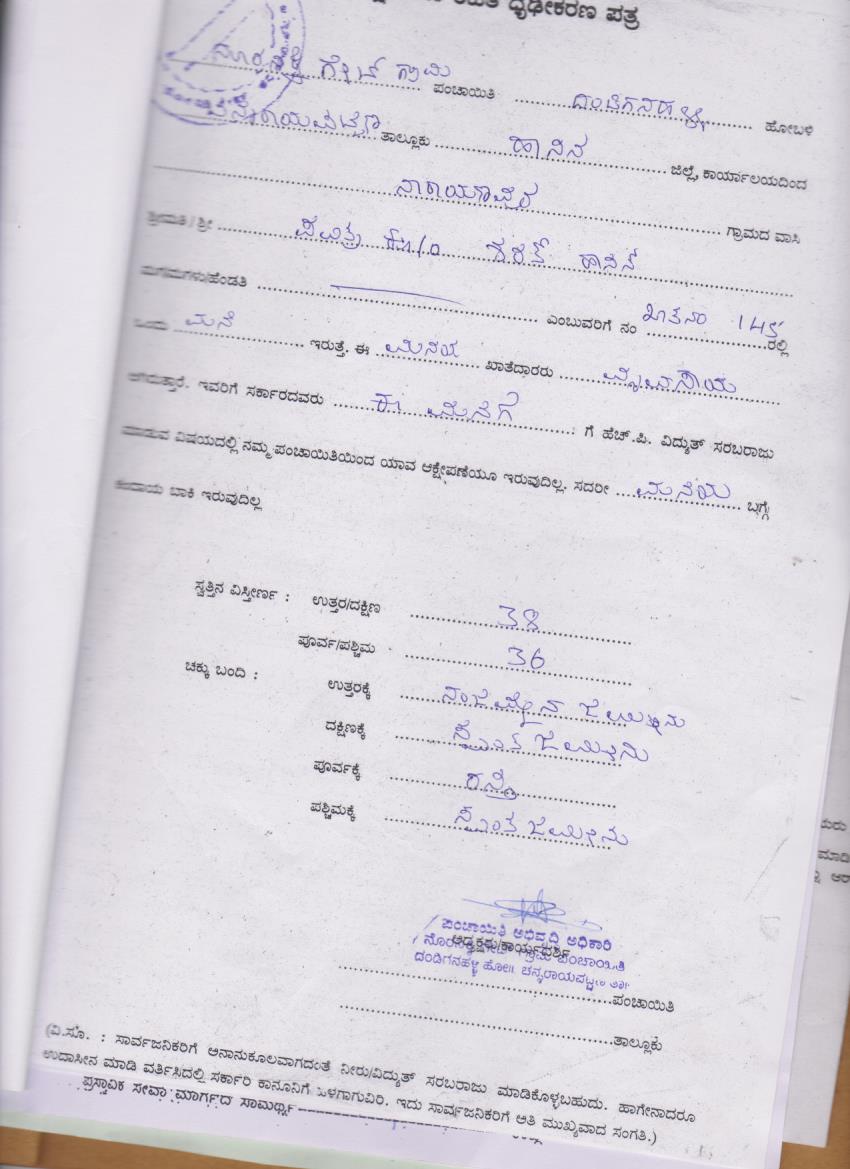 ದೃಢೀಕರಣ ಪತ್ರ
ಗೇಟ್ ಗ್ರಾಮ ಪಂಚಾಯಿತಿ ದಂಡಿಗನಹಳ್ಳಿ ಹೋಬಳಿ
ಚನ್ನರಾಯಪಟ್ಟಣ ತಾಲ್ಲೂಕು ಹಾಸನ ಜಿಲ್ಲೆ, ಕಾರ್ಯಾಲಯದಿಂದ
ಗ್ರಾಮದ ವಾಸಿ
ಶ್ರೀಮತಿ / ಶ್ರೀ ಪವಿತ್ರ ಕೋಂ ಶರತ್ ಹಾಸನ
ಮಗ/ಮಗಳು/ಹೆಂಡತಿ ಎಂಬುವರಿಗೆ ನಂ ಖಾತನಂ ರಲ್ಲಿ
ಒಂದು ಮನೆ ಇರುತ್ತೆ. ಈ ಮನೆಯ ಖಾತೆದಾರರು
ಆಗಿರುತ್ತಾರೆ. ಇವರಿಗೆ ಸರ್ಕಾರದವರು ಈ ಮನೆಗೆ ಗೆ ಹೆಚ್.ಪಿ. ವಿದ್ಯುತ್ ಸರಬರಾಜು
ಮಾಡುವ ವಿಷಯದಲ್ಲಿ ನಮ್ಮ ಪಂಚಾಯಿತಿಯಿಂದ ಯಾವ ಆಕ್ಷೇಪಣೆಯೂ ಇರುವುದಿಲ್ಲ. ಸದರೀ ಮನೆಯ ಬಗ್ಗೆ
ಕಂದಾಯ ಬಾಕಿ ಇರುವುದಿಲ್ಲ
ಸ್ವತ್ತಿನ ವಿಸ್ತೀರ್ಣ : ಉತ್ತರ/ದಕ್ಷಿಣ 38
ಪೂರ್ವ/ಪಶ್ಚಿಮ 36
ಚಕ್ಕು ಬಂದಿ : ಉತ್ತರಕ್ಕೆ ಜಮೀನು
ದಕ್ಷಿಣಕ್ಕೆ ಸ್ವಂತ ಜಮೀನು
ಪೂರ್ವಕ್ಕೆ ರಸ್ತೆ
ಪಶ್ಚಿಮಕ್ಕೆ ಸ್ವಂತ ಜಮೀನು
ಪಂಚಾಯಿತಿ ಅಭಿವೃದ್ಧಿ ಅಧಿಕಾರಿ
ಅಧ್ಯಕ್ಷರು/ಕಾರ್ಯದರ್ಶಿ
ಗ್ರಾಮ ಪಂಚಾಯಿತಿ
ದಂಡಿಗನಹಳ್ಳಿ ಹೋ॥ ಚನ್ನರಾಯಪಟ್ಟಣ ತಾ॥
ಪಂಚಾಯಿತಿ
ತಾಲ್ಲೂಕು
(ವಿ.ಸೂ. : ಸಾರ್ವಜನಿಕರಿಗೆ ಅನಾನುಕೂಲವಾಗದಂತೆ ನೀರು/ವಿದ್ಯುತ್ ಸರಬರಾಜು ಮಾಡಿಕೊಳ್ಳಬಹುದು. ಹಾಗೇನಾದರೂ
ಉದಾಸೀನ ಮಾಡಿ ವರ್ತಿಸಿದಲ್ಲಿ ಸರ್ಕಾರಿ ಕಾನೂನಿಗೆ ಒಳಗಾಗುವಿರಿ. ಇದು ಸಾರ್ವಜನಿಕರಿಗೆ ಅತಿ ಮುಖ್ಯವಾದ ಸಂಗತಿ.)
ಪ್ರಸ್ತಾವಿಕ ಸೇವಾ ಮಾರ್ಗದ ಸಾಮರ್ಥ್ಯ